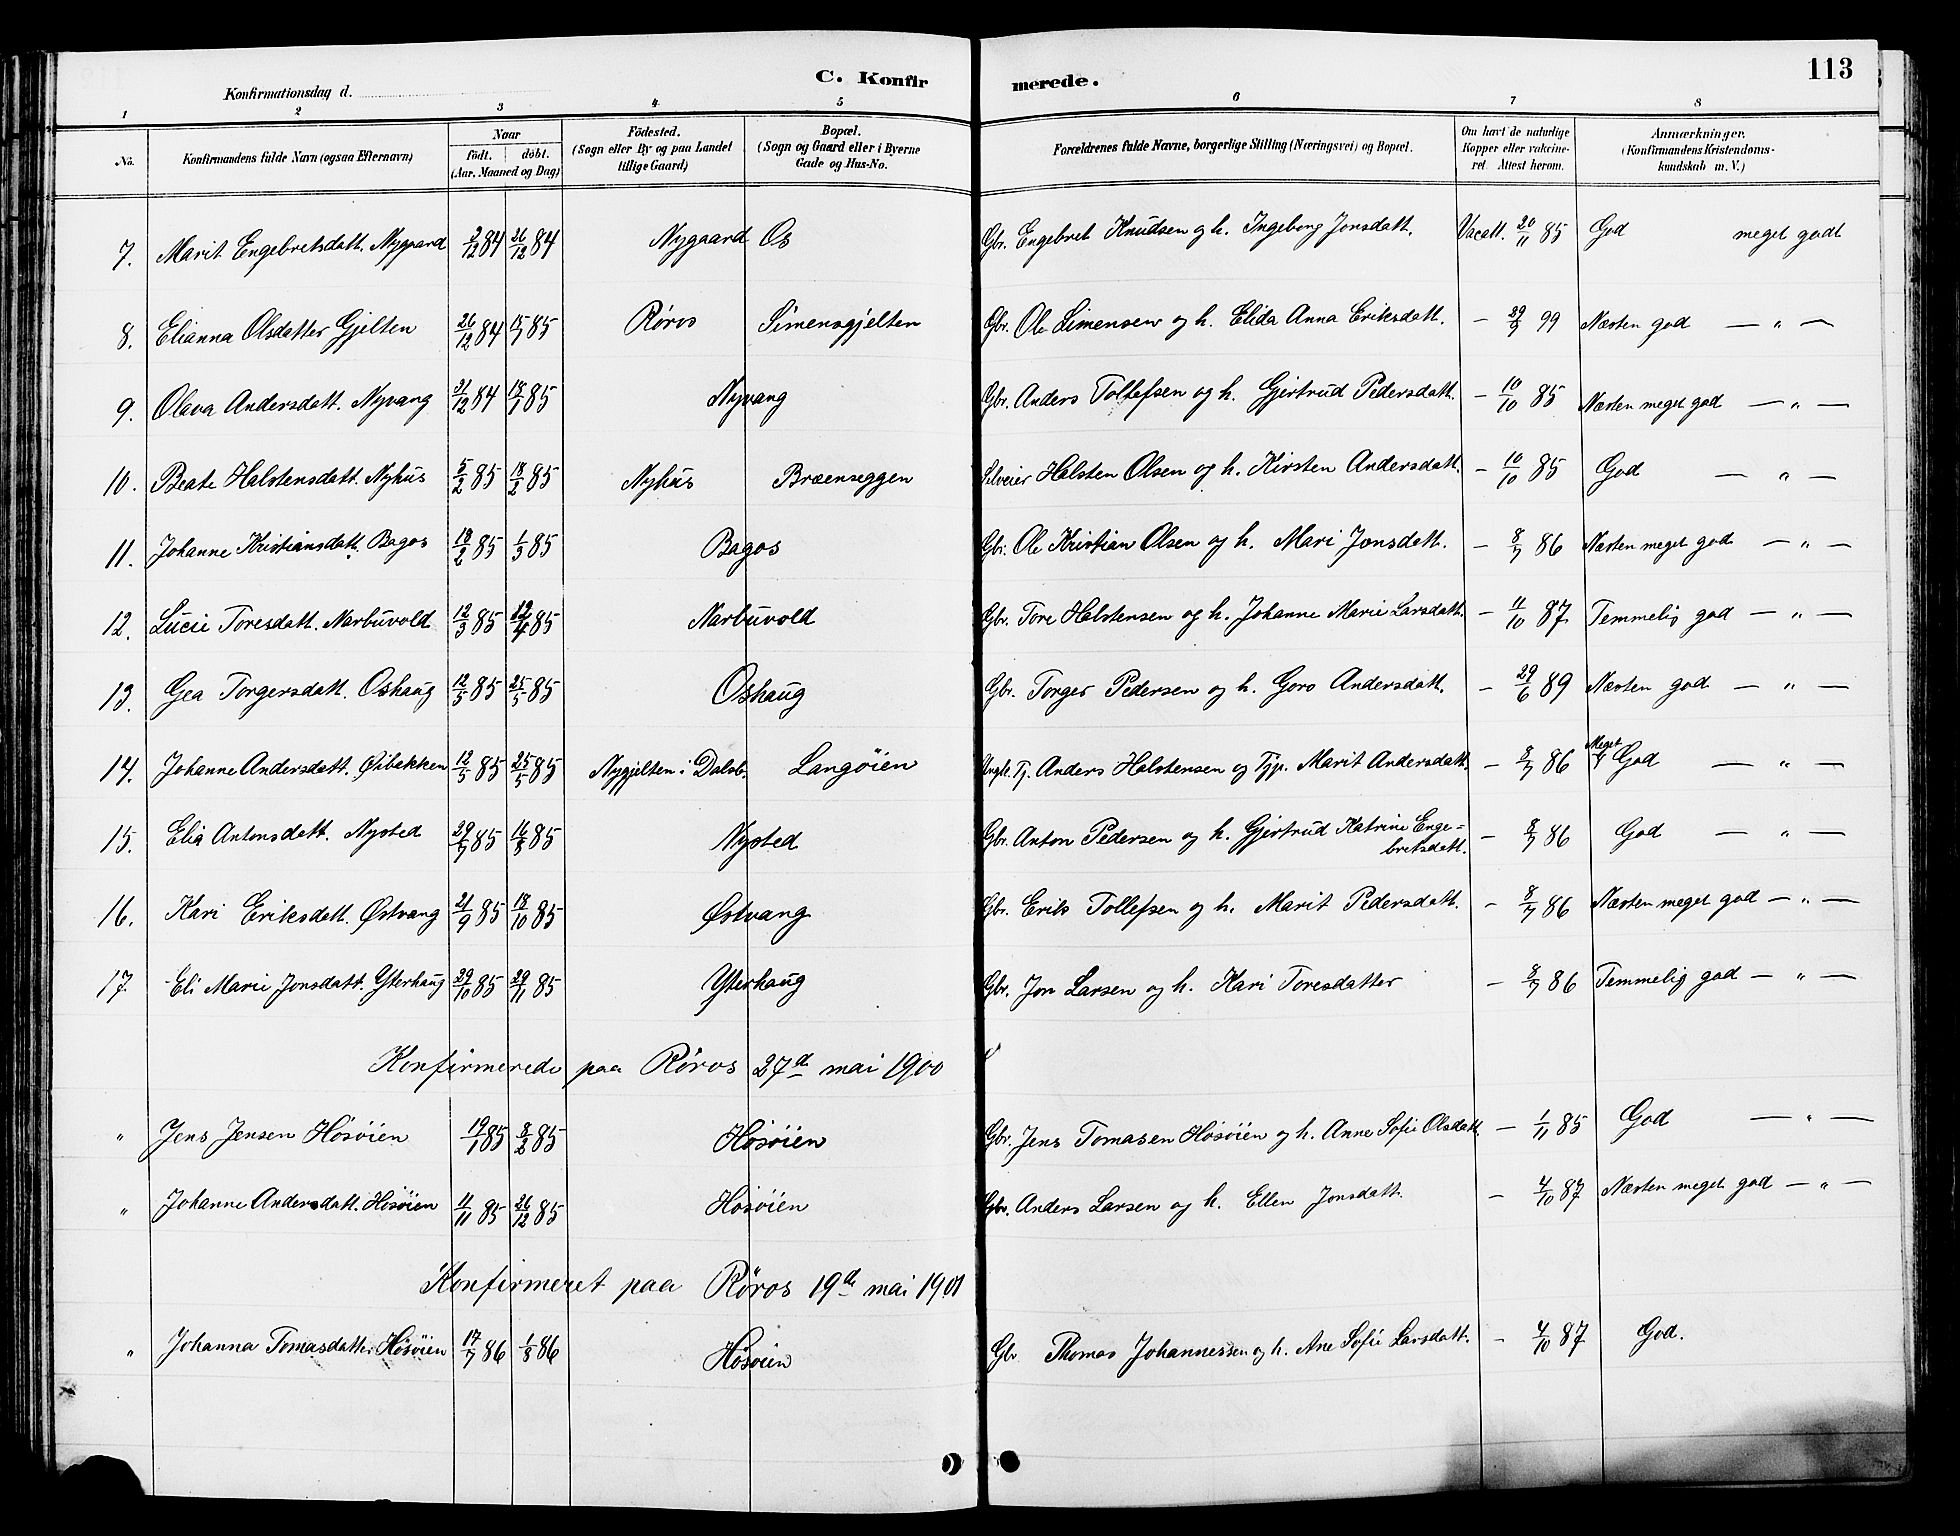 C. Konfirmerede.
113
Konfirmationsdag d.
1 2 3 4 5 6 7 8
No. Konfirmandens fulde Navn (ogsaa Efternavn) Naar født. døbt. (Aar, Maaned og Dag) Födested. (Sogn eller By og paa Landet tillige Gaard) Bopæl. (Sogn og Gaard eller i Byerne Gade og Hus-No. Forældrenes fulde Navne, borgerlige Stilling (Næringsvei) og Bopæl. Om havt de naturlige Kopper eller vakcineret Attest herom. Anmærkninger. (Konfirmandens Kristendomskundskab m. V.)
7. Marit Engebretsdatt. Nygaard 2/12 84 26/12 84 Nygaard Os Gbr. Engebret Knudsen og h. Ingeborg Jonsdatt. Vacatt. 20/11 85 God meget godt
8. Elianna Olsdatter Gjelten 26/12 84 15/1 85 Røros Simensgjelten Gbr. Ole Simensen og h. Elida Anna Eriksdatt. — 29/9 99 Næsten god — " —
9. Olava Andersdatt. Nyvang 31/12 84 18/1 85 Nyvang Gbr. Anders Tollefsen og h. Gjertrud Pedersdatt. — 10/10 85 Næsten meget god — " —
10. Beate Halstensdatt. Nyhus 5/2 85 18/2 85 Nyhus Bræenseggen Selveier Halsten Olsen og h. Kirsten Andersdatt. — 10/10 85 God — " —
11. Johanne Kristiansdatt. Bagos 18/2 85 1/3 85 Bagos Gbr. Ole Kristian Olsen og h. Mari Jonsdatt. — 8/7 86 Næsten meget god — " —
12. Lucie Toresdatt. Narbuvold 12/3 85 12/4 85 Narbuvold Gbr. Tore Halstensen og h. Johanne Marie Larsdatt. — 11/10 87 Temmelig god — " —
13. Gea Torgersdatt. Oshaug 12/5 85 25/5 85 Oshaug Gbr. Torger Pedersen og h. Goro Andersdatt. — 29/6 89 Næsten god — " —
14. Johanne Andersdatt. Øibakken 12/5 85 25/5 85 Nygjelten i Dalsb. Langøien Ungk. Tj. Anders Halstensen og Tjp. Marit Andersdatt. — 8/7 86 Meget God — " —
15. Elia Antonsdatt. Nysted 29/7 85 16/8 85 Nysted Gbr. Anton Pedersen og h. Gjertrud Katrine Engebretsdatt. — 8/7 86 God — " —
16. Kari Eriksdatt. Østvang 21/9 85 18/10 85 Østvang Gbr. Erik Tollefsen og h. Marit Pedersdatt. — 8/7 86 Næsten meget god — " —
17. Eli Marie Jonsdatt. Ytterhaug 29/10 85 29/11 85 Ytterhaug Gbr. Jon Larsen og h. Kari Toresdatter — 8/7 86 Temmelig god — " —
Konfirmerede paa Røros 27de mai 1900
" Jens Jensen Høsøien 19/1 85 8/2 85 Høsøien Gbr. Jens Tomasen Høsøien og h. Anne Sofie Olsdatt. — 1/11 85 God — " —
" Johanne Andersdatt. Høsøien 11/11 85 26/12 85 Høsøien Gbr. Anders Larsen og h. Ellen Jonsdatt. — 4/10 87 Næsten meget god — " —
Konfirmeret paa Røros 19de mai 1901
" Johanna Tomasdatter Høsøien 17/7 86 1/8 86 Høsøien Gbr Thomas Johannessen og h. Ane Sofie Larsdatt. — 4/10 87 God.